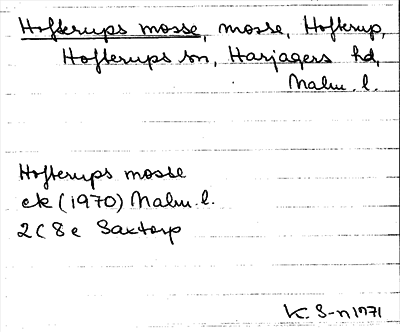 Hofterups mosse, mosse, Hofterup,
Hofterups sn, Harjagers hd,
Malm. l.
Hofterups mosse
ek (1970) Malm. l.
2C 8e Saxtorp
K. S-n 1971